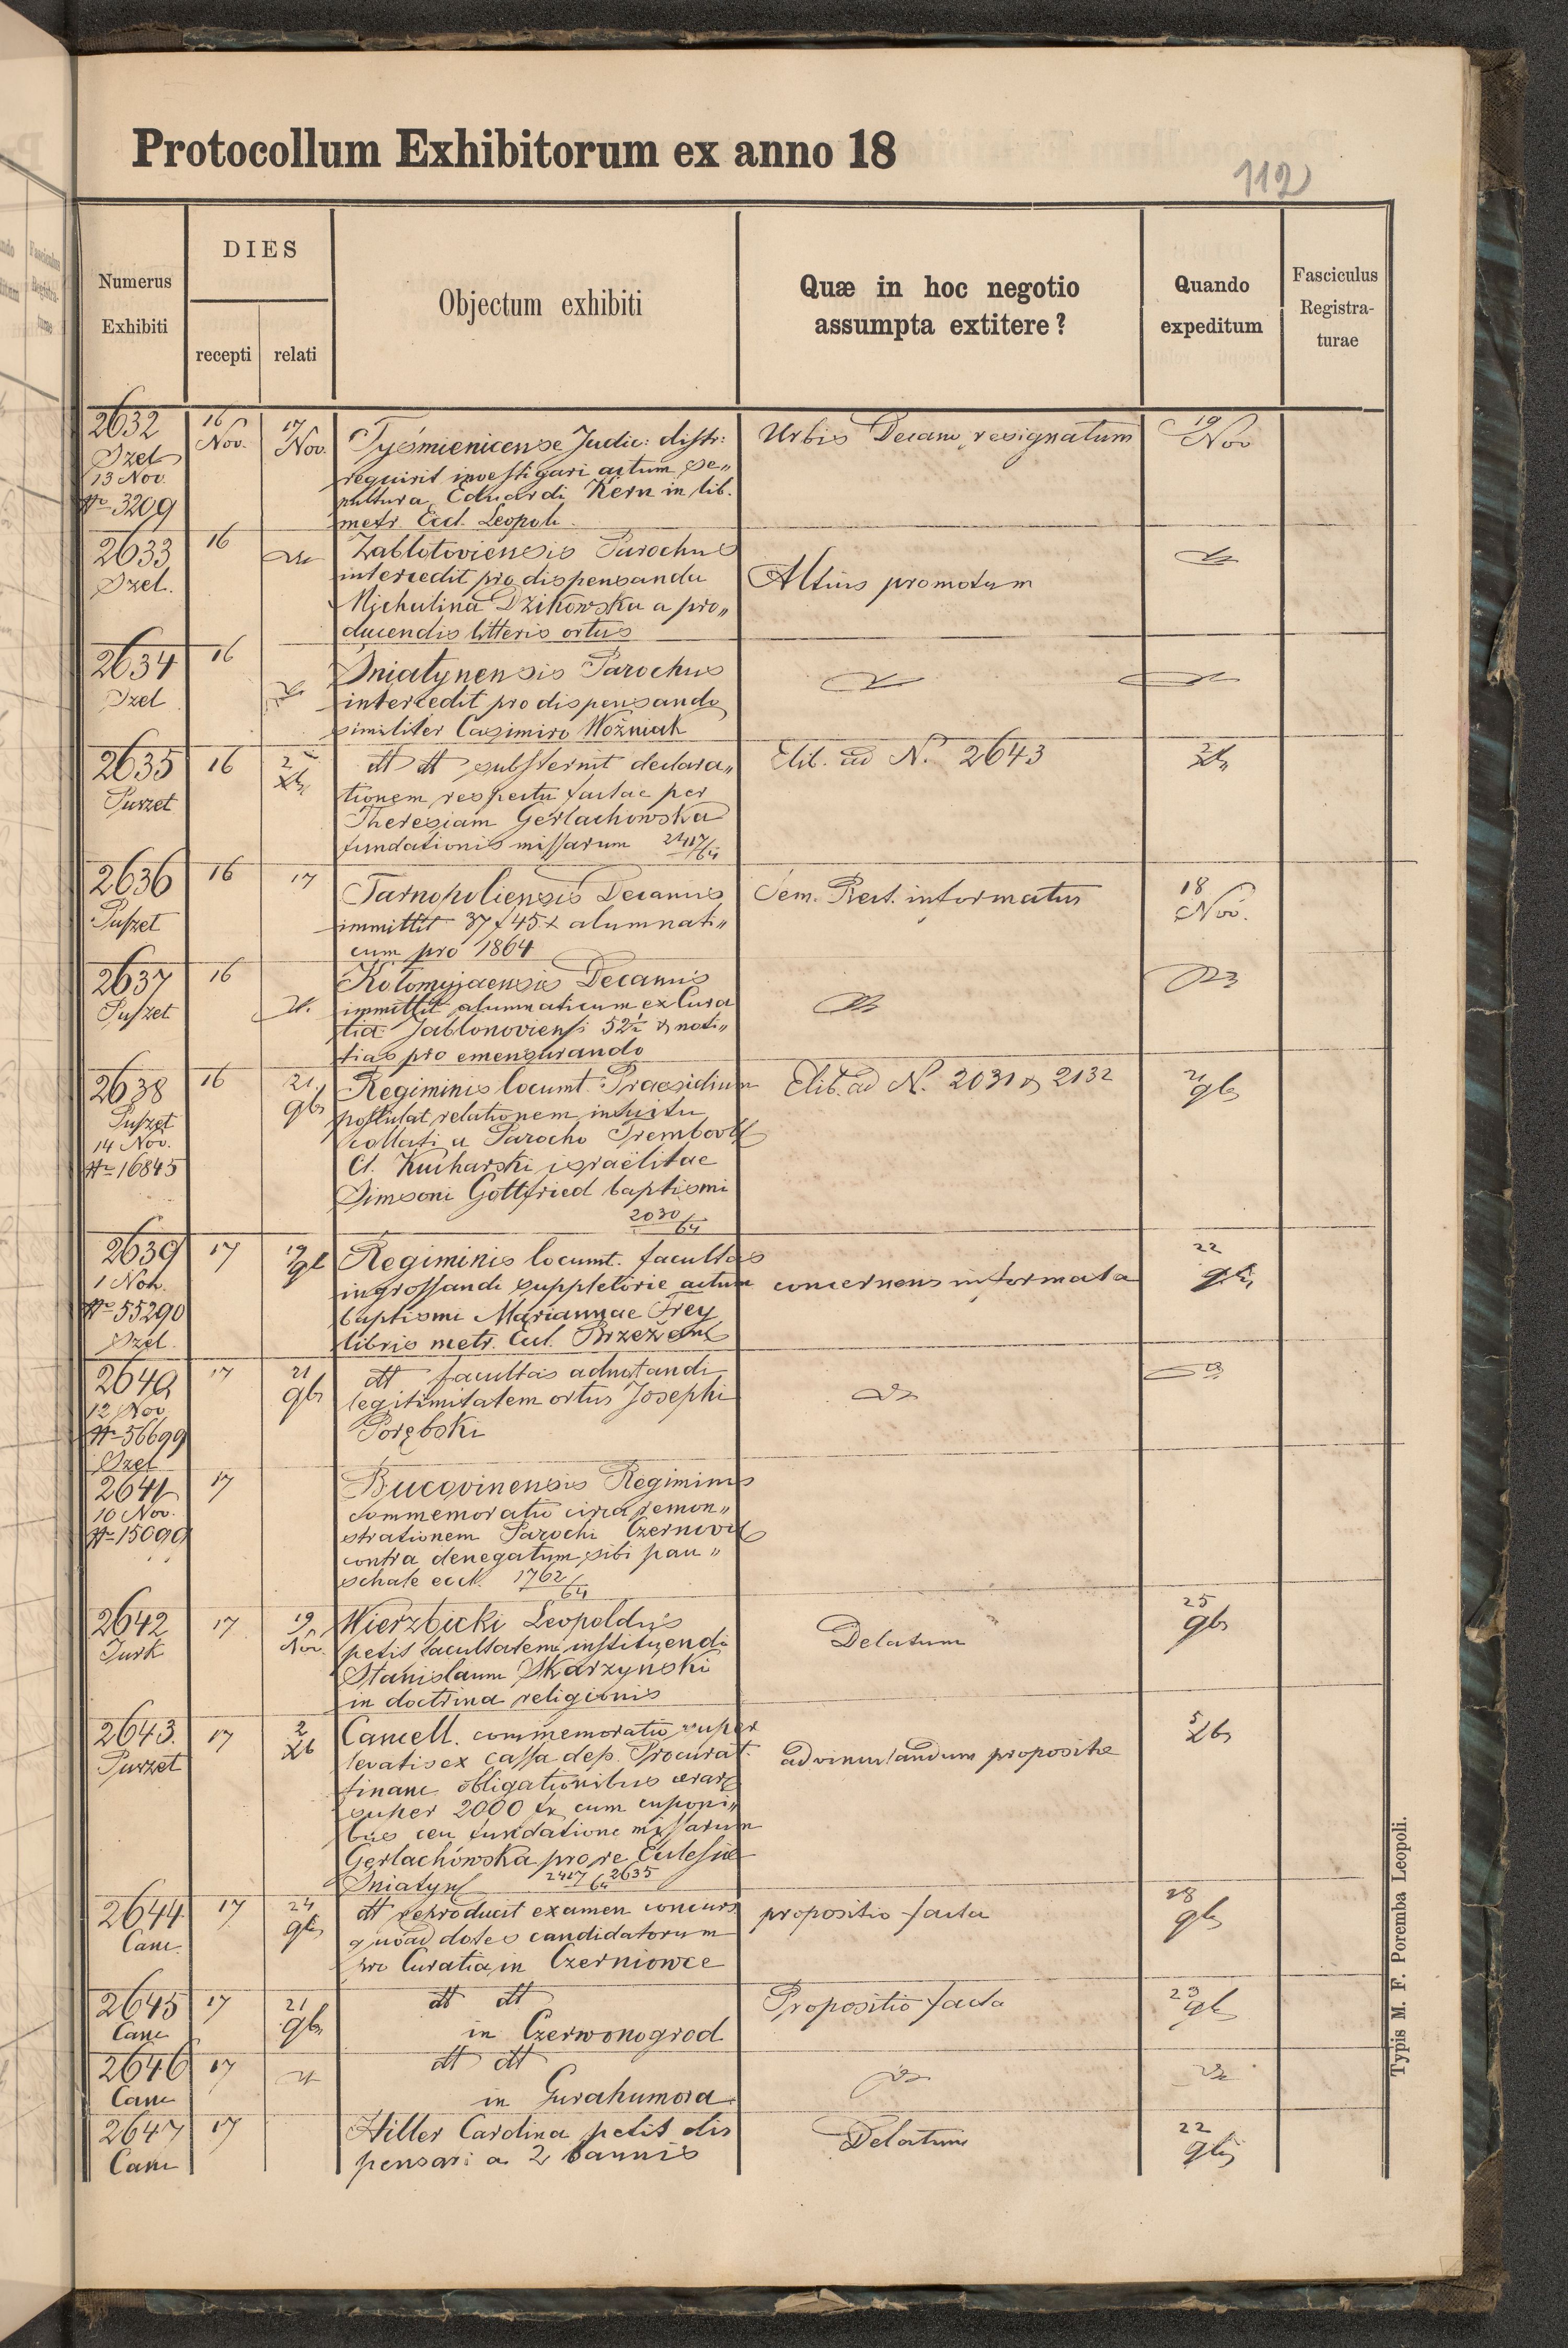 Protocollum Exhibitorum ex anno 18
112
Numerus Exhibiti
DIES
recepti
relati
Objectum exhibiti
Quæ in hoc negotio assumpta extitere?
Quando expeditum
Fasciculus Registra-turae
2632 16 Nov. 17 Nov. Tyśmienicense Judic: distr: Urbis Decano resignatum 19 Nov
Szel
13 Nov. requirit investigari actum se„
№ 3209 pultura Eduardi Kern in lib.
metr. Eccl. Leopol.
2633 16 Zablotoviensis Parochus
Szel. intercedit pro dispensanda Altius promotum
Michalina Dzikowska a pro„
ducendis litteris ortus
2634 16 Sniatynensis Parochus
Szel intercedit pro dispensando
similiter Casimiro Woźniak
2635 16 2 Xb dtt dtt substernit declara„ Elib. ad N. 2643 2 Xb
Purzet tionem respectu factae per
Theresiam Gerlachowska
fundationis missarum 2417/64
2636 16 17 Tarnopoliensis Decanus Sem. Rect. informatus 18 Nov.
Puszet immittit 37 f 45 x alumnati„
cum pro 1864
2637 16 Kołomyjaensis Decanus
Puszet immittit alumnaticum ex Cura
tia Jablonoviensi 52½ & noti„
tias pro emensurando
2638 16 21. 9b Regiminis locumt. Praesidium Elib. ad N. 2031 & 2132 21 9b
Puszet postulat relationem intuitu
14 Nov. collati a Parocho Trembovl
№ 16845 Cl. Kucharski israëlitae
Simsoni Gottfried baptismi
2030/64
2639 17 19 9b Regiminis locumt. facultas 22 9b
1 Nov. ingrossandi suppletorie actum concernens informata
№ 55290 baptismi Mariannae Frey
Szel. libris metr. Eccl. Brzeżan
2640 17 21 9b dtt facultas adnotandi
12 Nov legitimitatem ortus Josephi
№ 56699 Porębski
Szel
2641 17 Bucovinensis Regiminis
10 Nov. commemoratio circa remon„
№ 15099 strationem Parochi Czernovic
contra denegatum sibi pau„
schale eccl. 1762/64
2642 17 19 Nov. Wierzbicki Leopoldus 25 9b
Turk petit facultatem instituendi Delatum
Stanislaum Skarzyński
in doctrina religionis
2643. 17 2 Xb Cancell. commemoratio super 5 Xb
Purzet levatis ex cassa dep. Procurat. advinculandum propositae
financ obligationibus aerar
super 2000 fr cum cuponi„
bus ceu fundatione missarum
Gerlachówska pro re Eclesiae
Sniatyn 2417/64 2635
2644 17 24 9b dtt reproducit examen concurs. propositio facta 28 9b
Canc. quoad dotes candidatorum
pro Curatia in Czerniowce
2645 17 21 9b dtt dtt Propositio facta 23 9b
Canc in Czerwonogrod
2646 17 dtt dtt
Canc in Gurahumora
2647 17 Hiller Carolina petit dis Delatum 22 9b
Canc pensari a 2 bannis
Typis M. F. Poremba Leopoli.